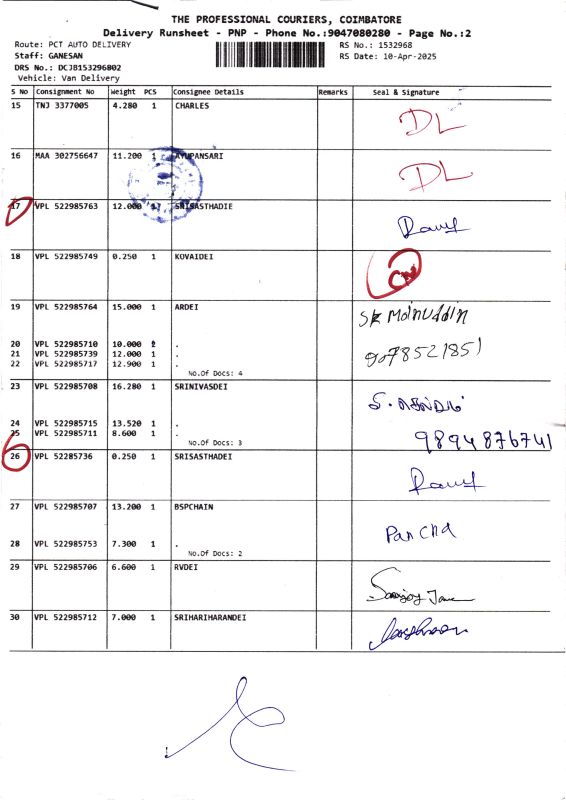 THE PROFESSIONAL COURIERS, COIMBATORE
Delivery Runsheet - PNP - Phone No.:9047080280 - Page No.:2
Route: PCT AUTO DELIVERY
RS No.: 1532968
Staff: GANESAN
RS Date: 10-Apr-2025
DRS No.: DCJB153296802
Vehicle: Van Delivery
S No Consignment No Weight PCS Consignee Details Remarks Seal & Signature
15 TNJ 3377005 4.280 1 CHARLES
DL
16 MAA 302756647 11.200 1 AYUPANSARI
DL
17 VPL 522985763 12.000 SRISASTHADIE
18 VPL 522985749 0.250 1 KOVAIDEI
19 VPL 522985764 15.000 1 ARDEI
SK Moinuddin
20 VPL 522985710 10.000 .
21 VPL 522985739 12.000 1 .
9078521851
22 VPL 522985717 12.900 1 .
No.Of Docs: 4
23 VPL 522985708 16.280 1 SRINIVASDEI
24 VPL 522985715 13.520 1 .
25 VPL 522985711 8.600 1 .
9894876741
No.Of Docs: 3
26 VPL 52285736 0.250 1 SRISASTHADEI
27 VPL 522985707 13.200 1 BSPCHAIN
Pancha
28 VPL 522985753 7.300 1 .
No.Of Docs: 2
29 VPL 522985706 6.600 1 RVDEI
30 VPL 522985712 7.000 1 SRIHARIHARANDEI